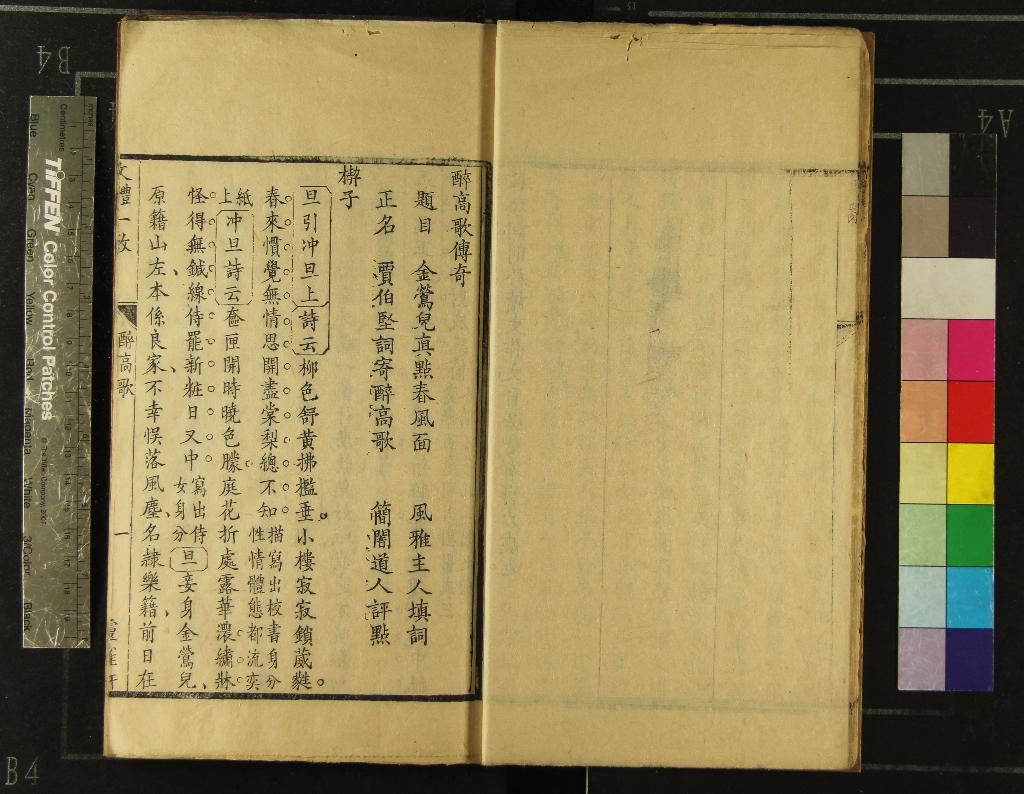 醉高歌傳奇
題目　金鶯兒真點春風面　風雅主人填詞
正名　賈伯堅詞寄醉高歌　簡闇道人評點
楔子
旦引冲旦上詩云柳色舒黄拂檻垂小樓寂寂鎖葳蕤
春來慣覺無情思開盡棠梨總不知描寫出校書身分性情體態都流奕
紙上冲旦詩云奩匣開時曉色朦庭花折處露華濃繡牀
怪得無鍼線侍罷新粧日又中寫出侍女身分旦妾身金鶯兒
原籍山左本係良家不幸悞落風塵名隸樂籍前日在
醉高歌
一
B4
A4
B4
TIFFEN Color Control Patches
Centimetres
Blue
Cyan
Green
Yellow
Red
Magenta
White
3/Color
Black